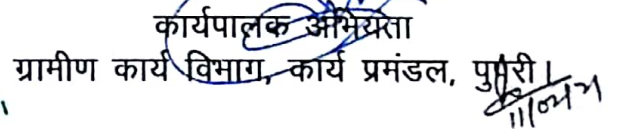 कार्यपालक अभियंता
ग्रामीण कार्य विभाग, कार्य प्रमंडल, पुपरी।